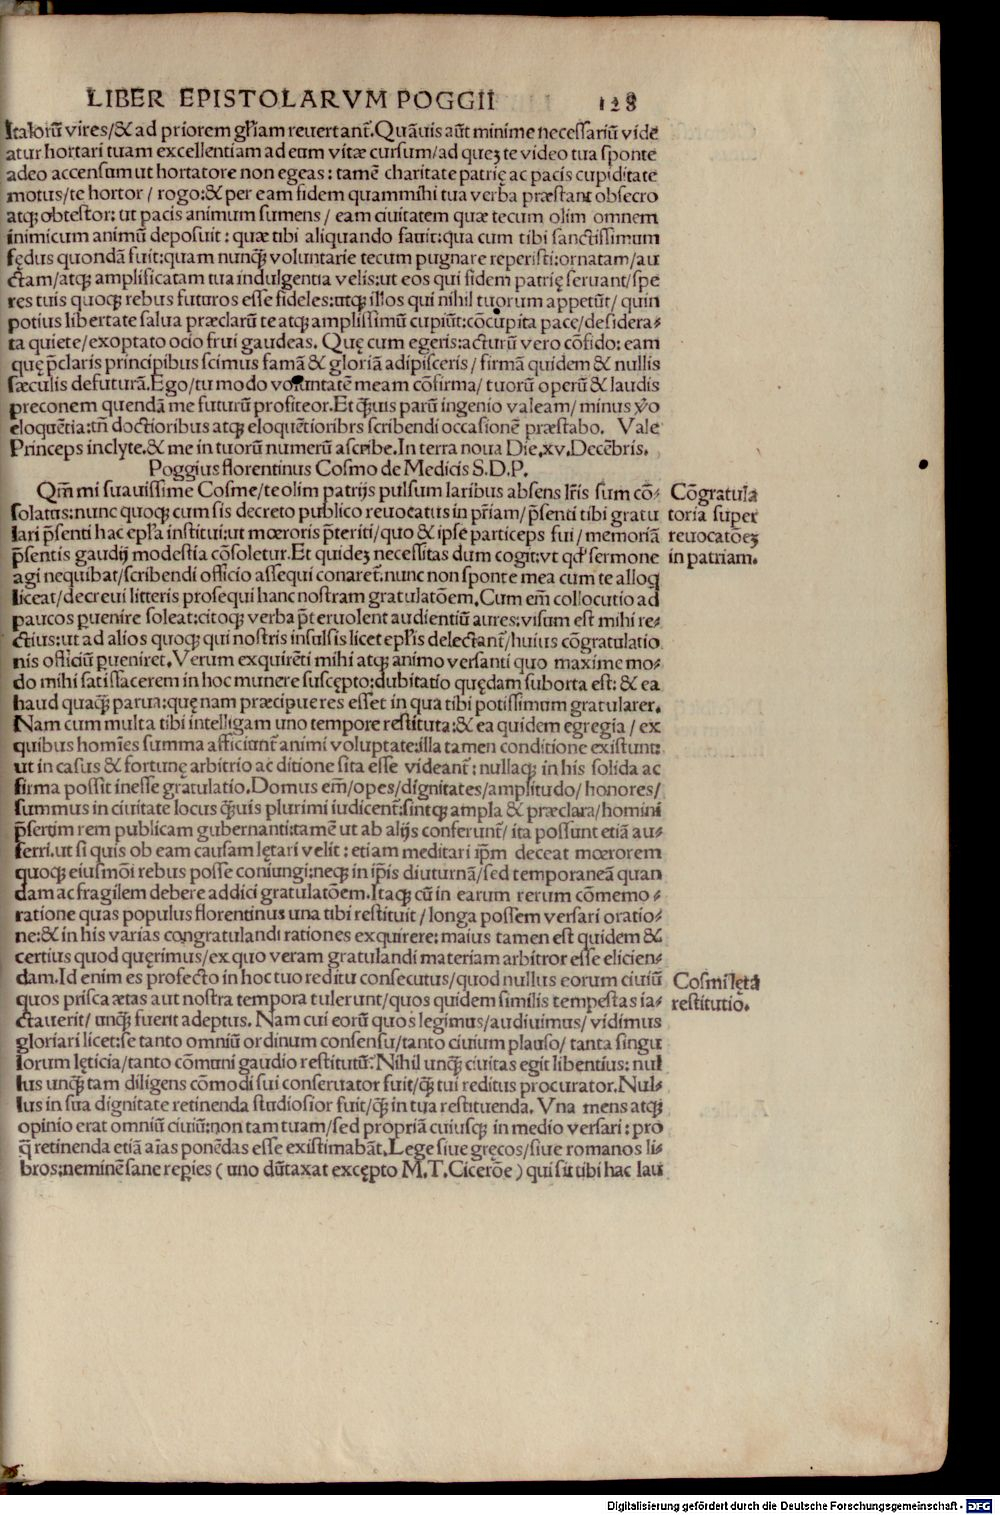 LIBER EPISTOLARVM POGGII 128
Italorū vires/& ad priorem gl̄iam reuertant̄. Quāuis aūt minime necessariū vide
atur hortari tuam excellentiam ad eum vitæ cursum/ad queꝫ te video tua sponte
adeo accensum ut hortatore non egeas: tamē charitate patrię ac pacis cupiditate
motus/te hortor / rogo:& per eam fidem quam mihi tua verba præstant obsecro
atqꝫ obtestor: ut pacis animum sumens / eam ciuitatem quæ tecum olim omnem
inimicum animū deposuit: quæ tibi aliquando fauit: qua cum tibi sanctissimum
fędus quondā fuit: quam nunqꝫ voluntarie tecum pugnare reperisti: ornatam/au
ctam/atqꝫ amplificatam tua indulgentia velis: ut eos qui fidem patrię seruant/spe
res tuis quoqꝫ rebus futuros esse fideles: utqꝫ illos qui nihil tuorum appetūt/ quin
potius libertate salua præclarū te atqꝫ amplissimū cupiūt: cōcupita pace/desidera-
ta quiete/exoptato ocio frui gaudeas. Quę cum egeris: acturū vero cōfido: eam
quę p̄claris principibus scimus famā & gloriā adipisceris / firmā quidem & nullis
sæculis defuturā. Ego/tu modo voluntatē meam cōfirma/ tuorū operū & laudis
preconem quendā me futurū profiteor. Et qꝫuis parū ingenio valeam/ minus v̄o
eloquētia: tn̄ doctioribus atqꝫ eloquētioribrs scribendi occasionē præstabo. Vale
Princeps inclyte. & me in tuorū numerū ascribe. In terra noua Die. xv. Decēbris.
Poggius florentinus Cosmo de Medicis S. D. P.
Qm̄ mi suauissime Cosme/te olim patrijs pulsum laribus absens lr̄is sum cō-
solatus: nunc quoqꝫ cum sis decreto publico reuocatus in pr̄iam/p̄senti tibi gratu
lari p̄senti hac epl̄a institui: ut mœroris p̄teriti/quo & ipse particeps fui/memoriā
p̄sentis gaudij modestia cōsoletur. Et quideꝫ necessitas dum cogit: vt qd̄ sermone
agi nequibat/scribendi officio assequi conaret̄. nunc non sponte mea cum te alloq
liceat/decreui litteris prosequi hanc nostram gratulatōem. Cum em̄ collocutio ad
paucos ꝑuenire soleat: citoqꝫ verba p̄teruolent audientiū aures: visum est mihi re-
ctius: ut ad alios quoqꝫ qui nostris insulsis licet epl̄is delectant̄/huius cōgratulatio
nis officiū ꝑueniret. Verum exquirēti mihi atqꝫ animo versanti quo maxime mo-
do mihi satisfacerem in hoc munere suscępto: dubitatio quędam suborta est: & ea
haud quaqꝫ parua: quę nam præcipue res esset in qua tibi potissimum gratularer.
Nam cum multa tibi intelligam uno tempore restituta: & ea quidem egregia / ex
quibus homīes summa afficiunt̄ animi voluptate: illa tamen conditione existunt:
ut in casus & fortunę arbitrio ac ditione sita esse videant̄: nullaqꝫ in his solida ac
firma possit inesse gratulatio. Domus em̄/opes/dignitates/amplitudo/ honores/
summus in ciuitate locus qꝫuis plurimi iudicent̄: sintqꝫ ampla & præclara/homini
p̄sertim rem publicam gubernanti: tamē ut ab alijs conferunt̄/ ita possunt etiā au-
ferri. ut si quis ob eam causam lętari velit: etiam meditari ip̄m deceat mœrorem
quoqꝫ eiusmōi rebus posse coniungi: neqꝫ in ip̄is diuturnā/sed temporaneā quan
dam ac fragilem debere addici gratulatōem. Itaqꝫ cū in earum rerum cōmemo-
ratione quas populus florentinus una tibi restituit / longa possem versari oratio-
ne: & in his varias congratulandi rationes exquirere: maius tamen est quidem &
certius quod quęrimus/ex quo veram gratulandi materiam arbitror esse elicien-
dam. Id enim es profecto in hoc tuo reditu consecutus/quod nullus eorum ciuiū
quos prisca ætas aut nostra tempora tulerunt/quos quidem similis tempestas ia-
ctauerit/ unqꝫ fuerit adeptus. Nam cui eorū quos legimus/audiuimus/ vidimus
gloriari licet: se tanto omniū ordinum consensu/tanto ciuium plauso/ tanta singu
lorum lęticia/tanto cōmuni gaudio restitutū: Nihil unqꝫ ciuitas egit libentius: nul
lus unqꝫ tam diligens cōmodi sui conseruator fuit/qꝫ tui reditus procurator. Nul-
lus in sua dignitate retinenda studiosior fuit/qꝫ in tua restituenda. Vna mens atqꝫ
opinio erat omniū ciuiū: non tam tuam/sed propriā cuiusqꝫ in medio versari: pro
q̄ retinenda etiā aīas ponēdas esse existimabāt. Lege siue gręcos/siue romanos li-
bros: neminē sane reꝑies ( uno dūtaxat excępto M. T. Cicerōe ) qui sit tibi hac lau
Cōngratula
toria super
reuocatōeꝫ
in patriam.
Cosmi lęta
restitutio.
Digitalisierung gefördert durch die Deutsche Forschungsgemeinschaft - DFG